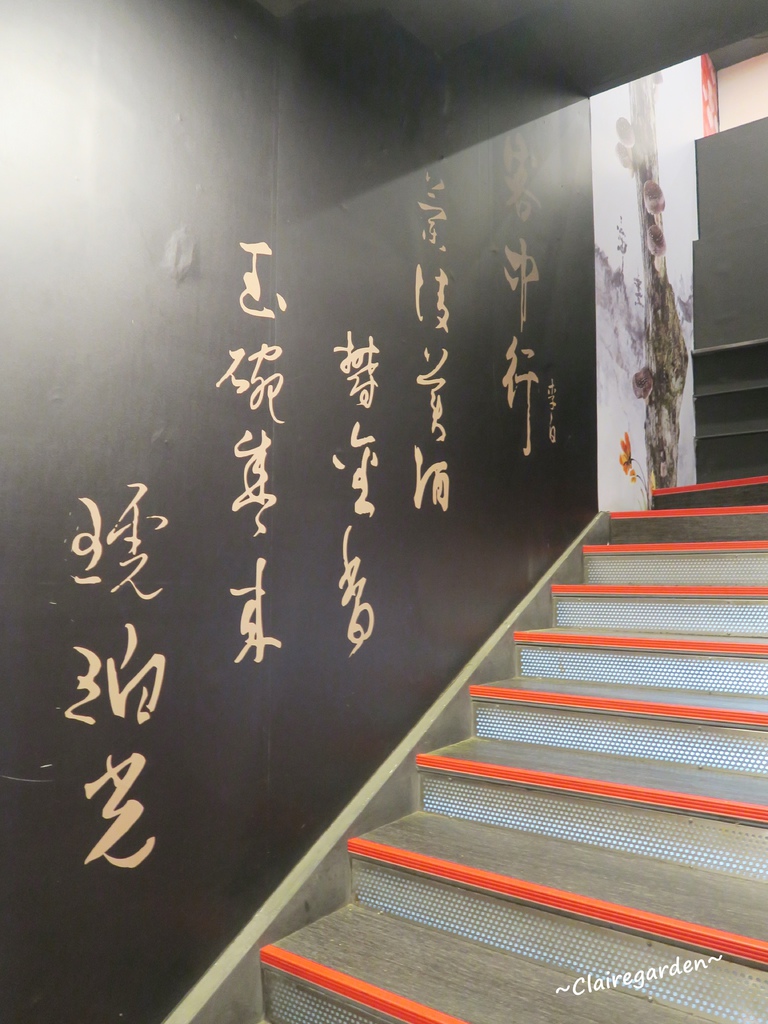 客中行
李白
蘭陵美酒
鬱金香
玉碗盛來
琥珀光
~Clairegarden~